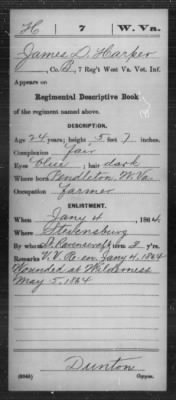 H | 7 | W. Va.
James D. Harper
, Co. B, 7 Reg't West Va. Vet. Inf.
Appears on
Regimental Descriptive Book
of the regiment named above.
DESCRIPTION.
Age 24 years; height 5 feet 7 inches.
Complexion fair
Eyes blue; hair dark
Where born Pendleton, W. Va
Occupation farmer
ENLISTMENT.
When Jany 4, 1864.
Where Stevensburg
By whom term 3 y'rs.
Remarks V. V. Re-en. Jany 4, 1864
Wounded at Wilderness
May 5, 1864
Dunton
Copyist.